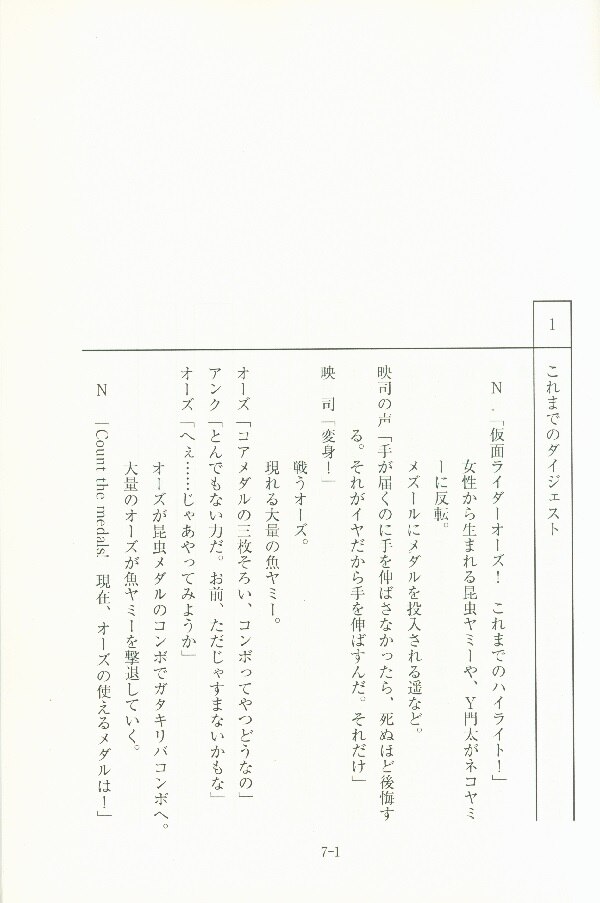 1
これまでのダイジェスト
N.「仮面ライダーオーズ! これまでのハイライト!」
女性から生まれる昆虫ヤミーや、Y門太がネコヤミ
ーに反転。
メズールにメダルを投入される遥など。
映司の声「手が届くのに手を伸ばさなかったら、死ぬほど後悔す
る。それがイヤだから手を伸ばすんだ。それだけ」
映 司「変身!」
戦うオーズ。
現れる大量の魚ヤミー。
オーズ「コアメダルの三枚そろい、コンボってやつどうなの」
アンク「とんでもない力だ。お前、ただじゃすまないかもな」
オーズ「へぇ……じゃあやってみようか」
オーズが昆虫メダルのコンボでガタキリバコンボへ。
大量のオーズが魚ヤミーを撃退していく。
N 「Count the medals' 現在、オーズの使えるメダルは!」
7-1